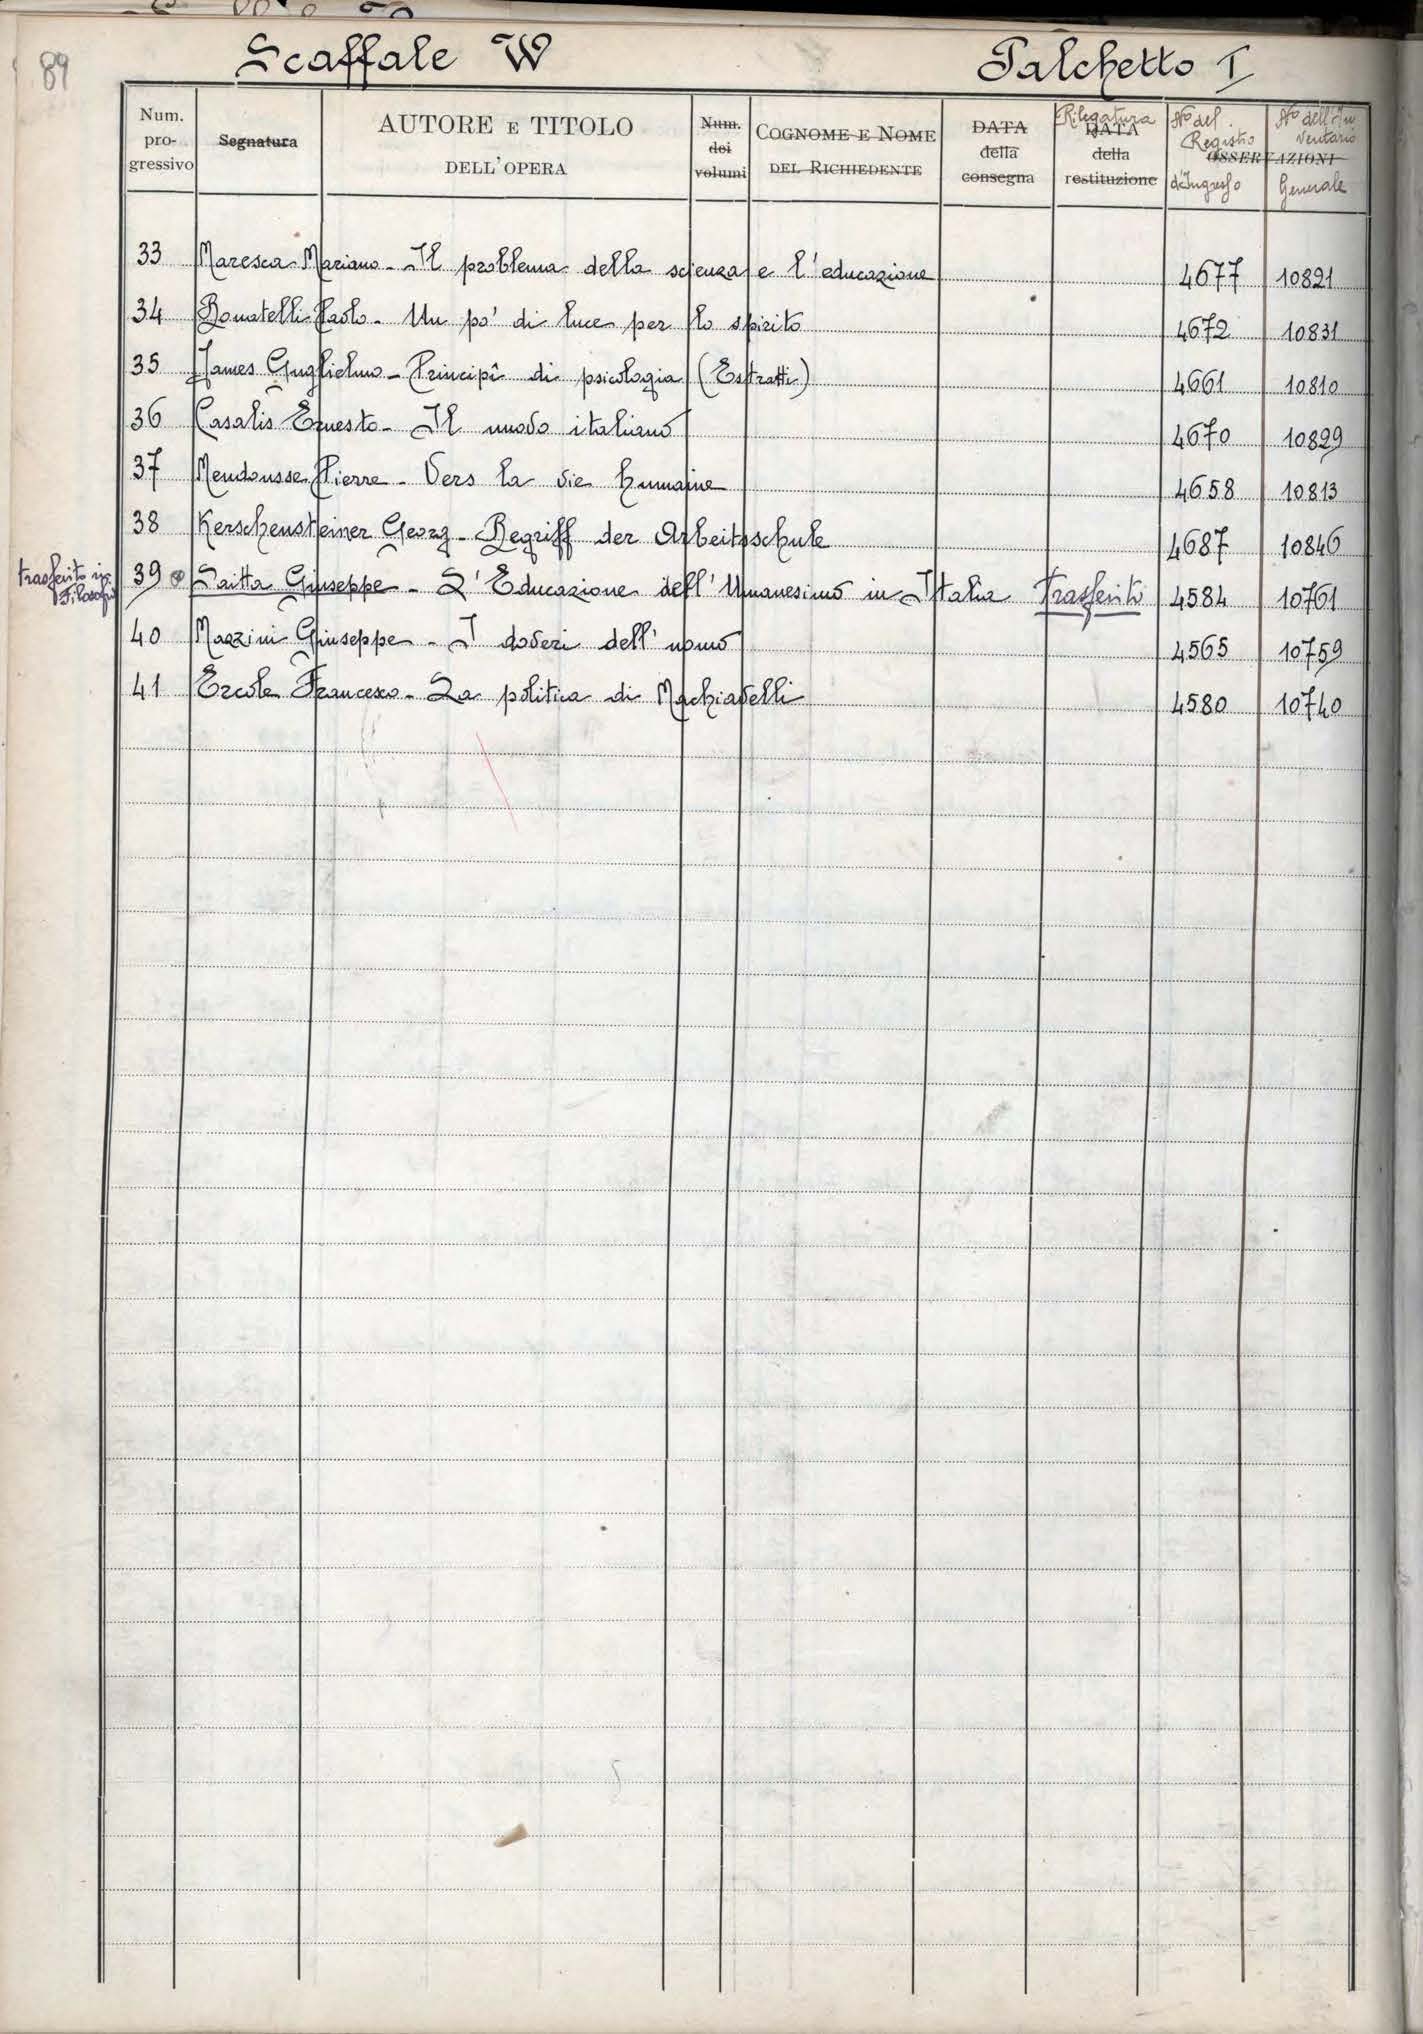 89
Scaffale W Palchetto I
Num. progressivo Segnatura AUTORE E TITOLO DELL'OPERA Num. dei volumi COGNOME E NOME DEL RICHIEDENTE DATA della consegna Rilegatura DATA della restituzione OSSERVAZIONI No del Registro d'Ingresso No dell'Inventario Generale
33 Maresca Mariano - Il problema della scienza e l'educazione 4677 10821
34 Bonatelli Paolo - Un po' di luce per lo spirito 4672 10831
35 James Guglielmo - Principî di psicologia (Estratti) 4661 10810
36 Casalis Ernesto - Il nuovo italiano 4670 10829
37 Mendousse Pierre - Vers la vie humaine 4658 10813
38 Kerschensteiner Georg - Begriff der Arbeitsschule 4687 10846
trasferito in Filosofia 39 Saitta Giuseppe - L'Educazione dell'Umanesimo in Italia Trasferito 4584 10761
40 Mazzini Giuseppe - I doveri dell'uomo 4565 10759
41 Ercole Francesco - La politica di Machiavelli 4580 10740